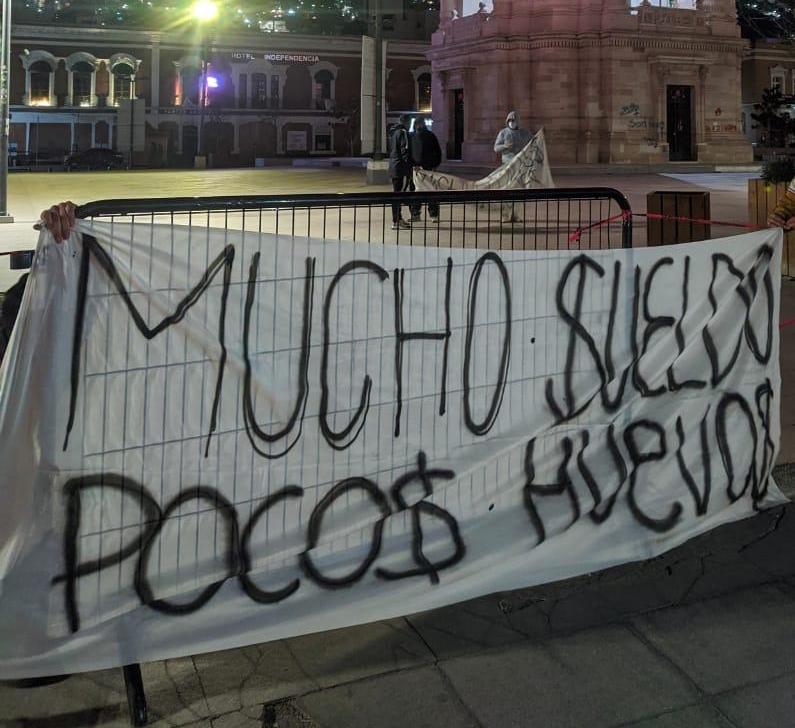 HOTEL INDEPENDENCIA
MUCHO $UELDO
POCO$ HUEVO$